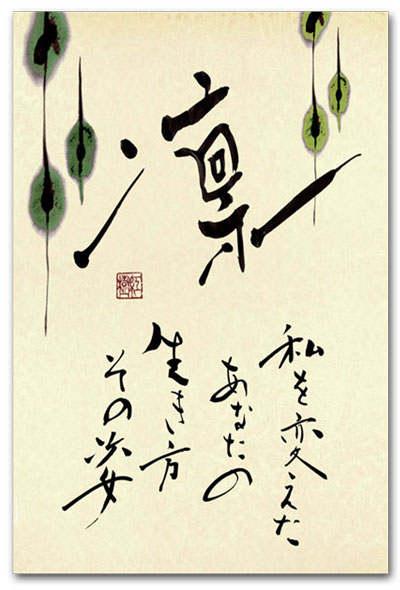 凛
私を変えた
あなたの
生き方
その姿